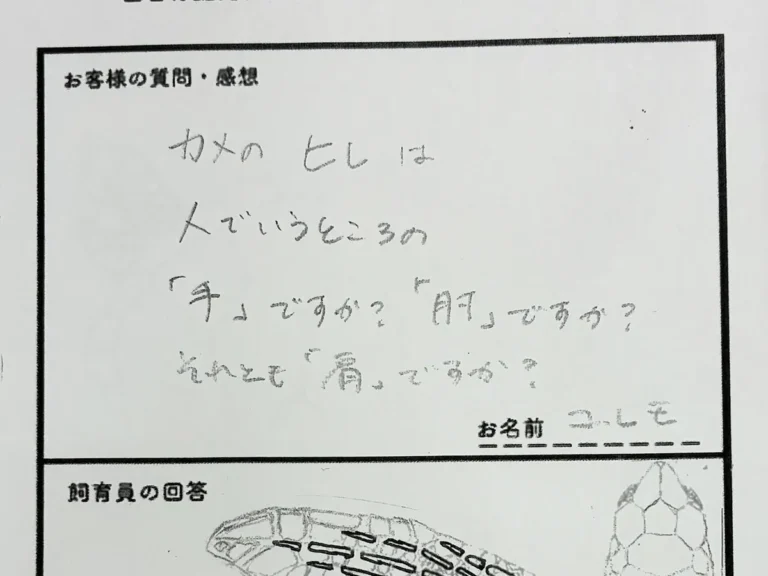 お客様の質問・感想
カメの ヒレ は
人でいうところの
「手」ですか？「肘」ですか？
それとも「肩」ですか？
お名前
飼育員の回答